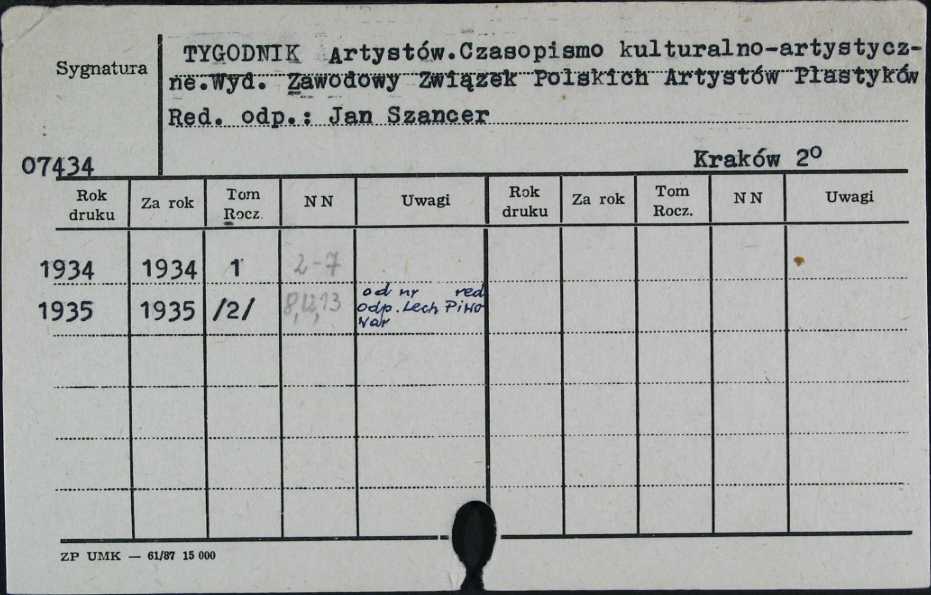 TYGODNIK Artystów.Czasopismo kulturalno-artystycz-
Sygnatura
ne.Wyd. Zawodowy Związek Polskich Artystów Plastyków
Red. odp.: Jan Szancer
07434
Kraków 2°
Rok druku Za rok Tom Rocz. NN Uwagi Rok druku Za rok Tom Rocz. NN Uwagi
1934 1934 1 2-7
1935 1935 /2/ 8,12,13 od nr red
odp. Lech Piwo
war
ZP UMK — 61/87 15 000